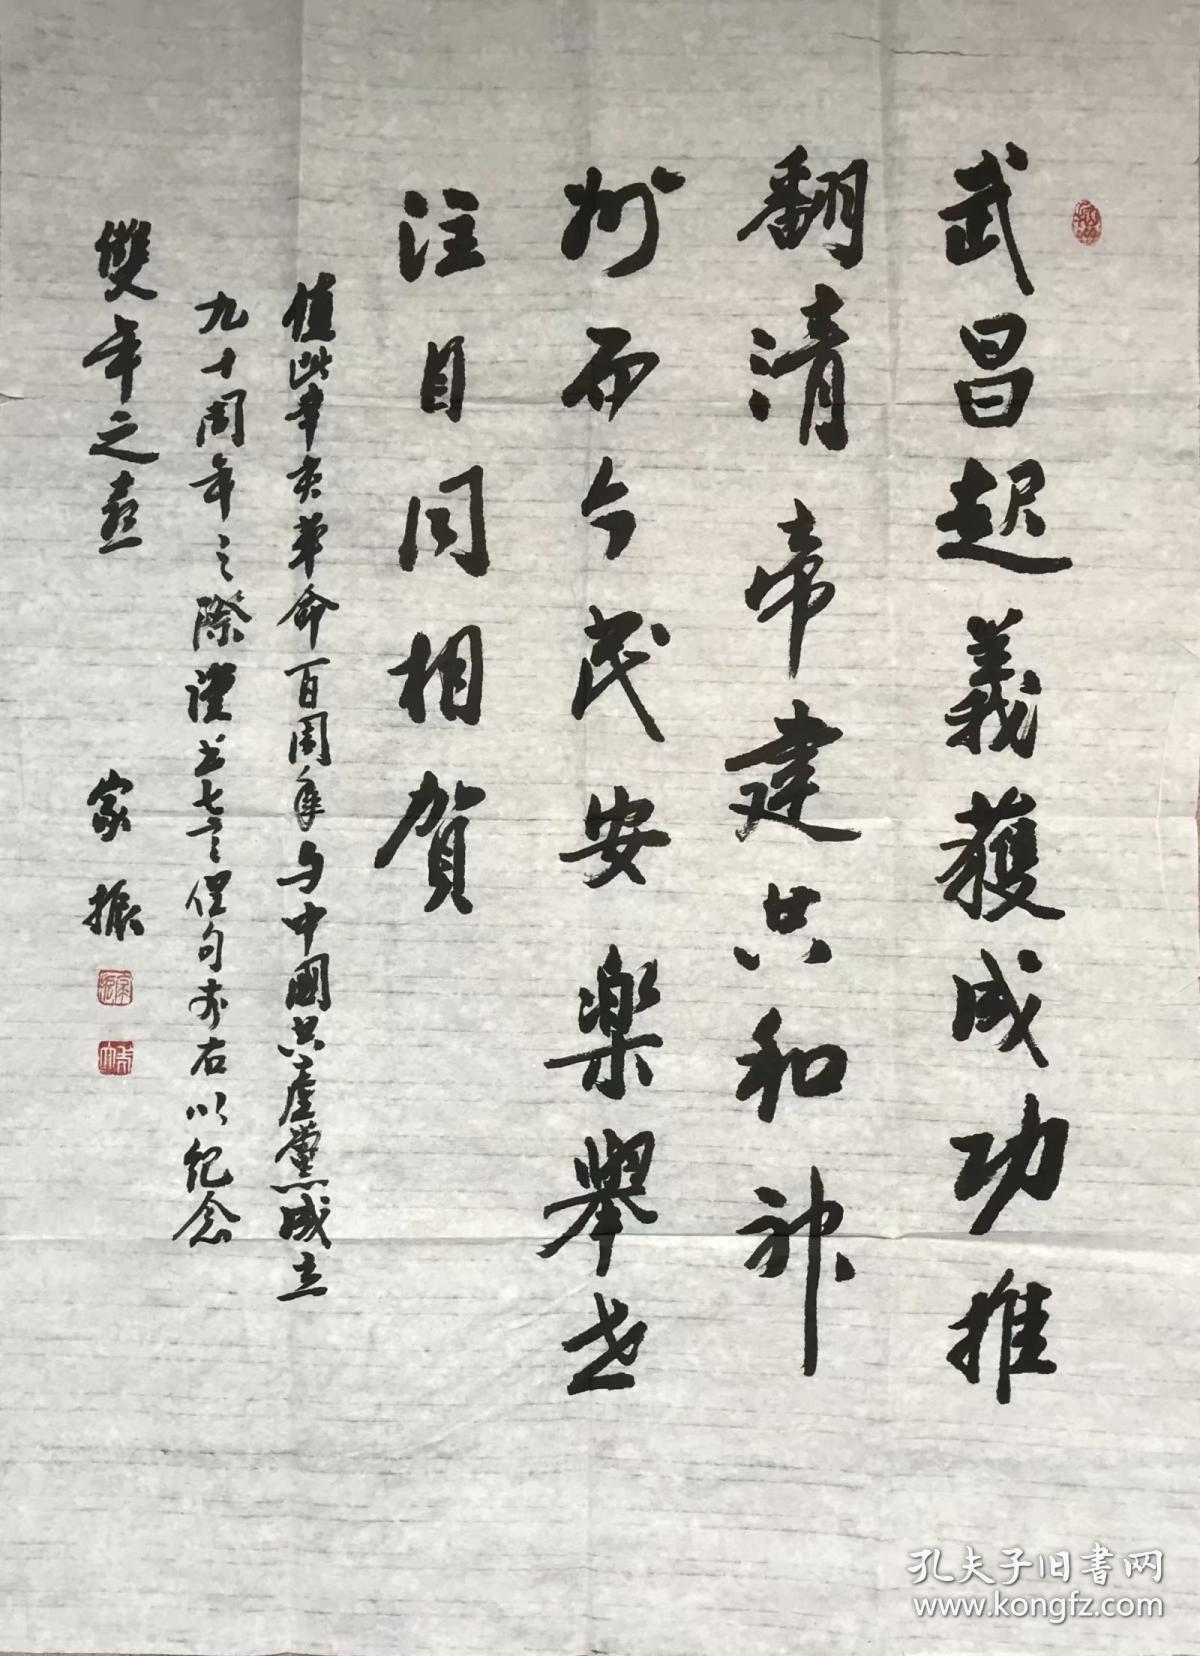 武昌起義獲成功推
翻清帝建共和神
州而今民安樂舉世
注目同相賀
值此辛亥革命百周年与中國共產黨成立
九十周年之際謹書七言俚句於右以紀念
雙年之喜
家振
孔夫子旧書网
www.kongfz.com